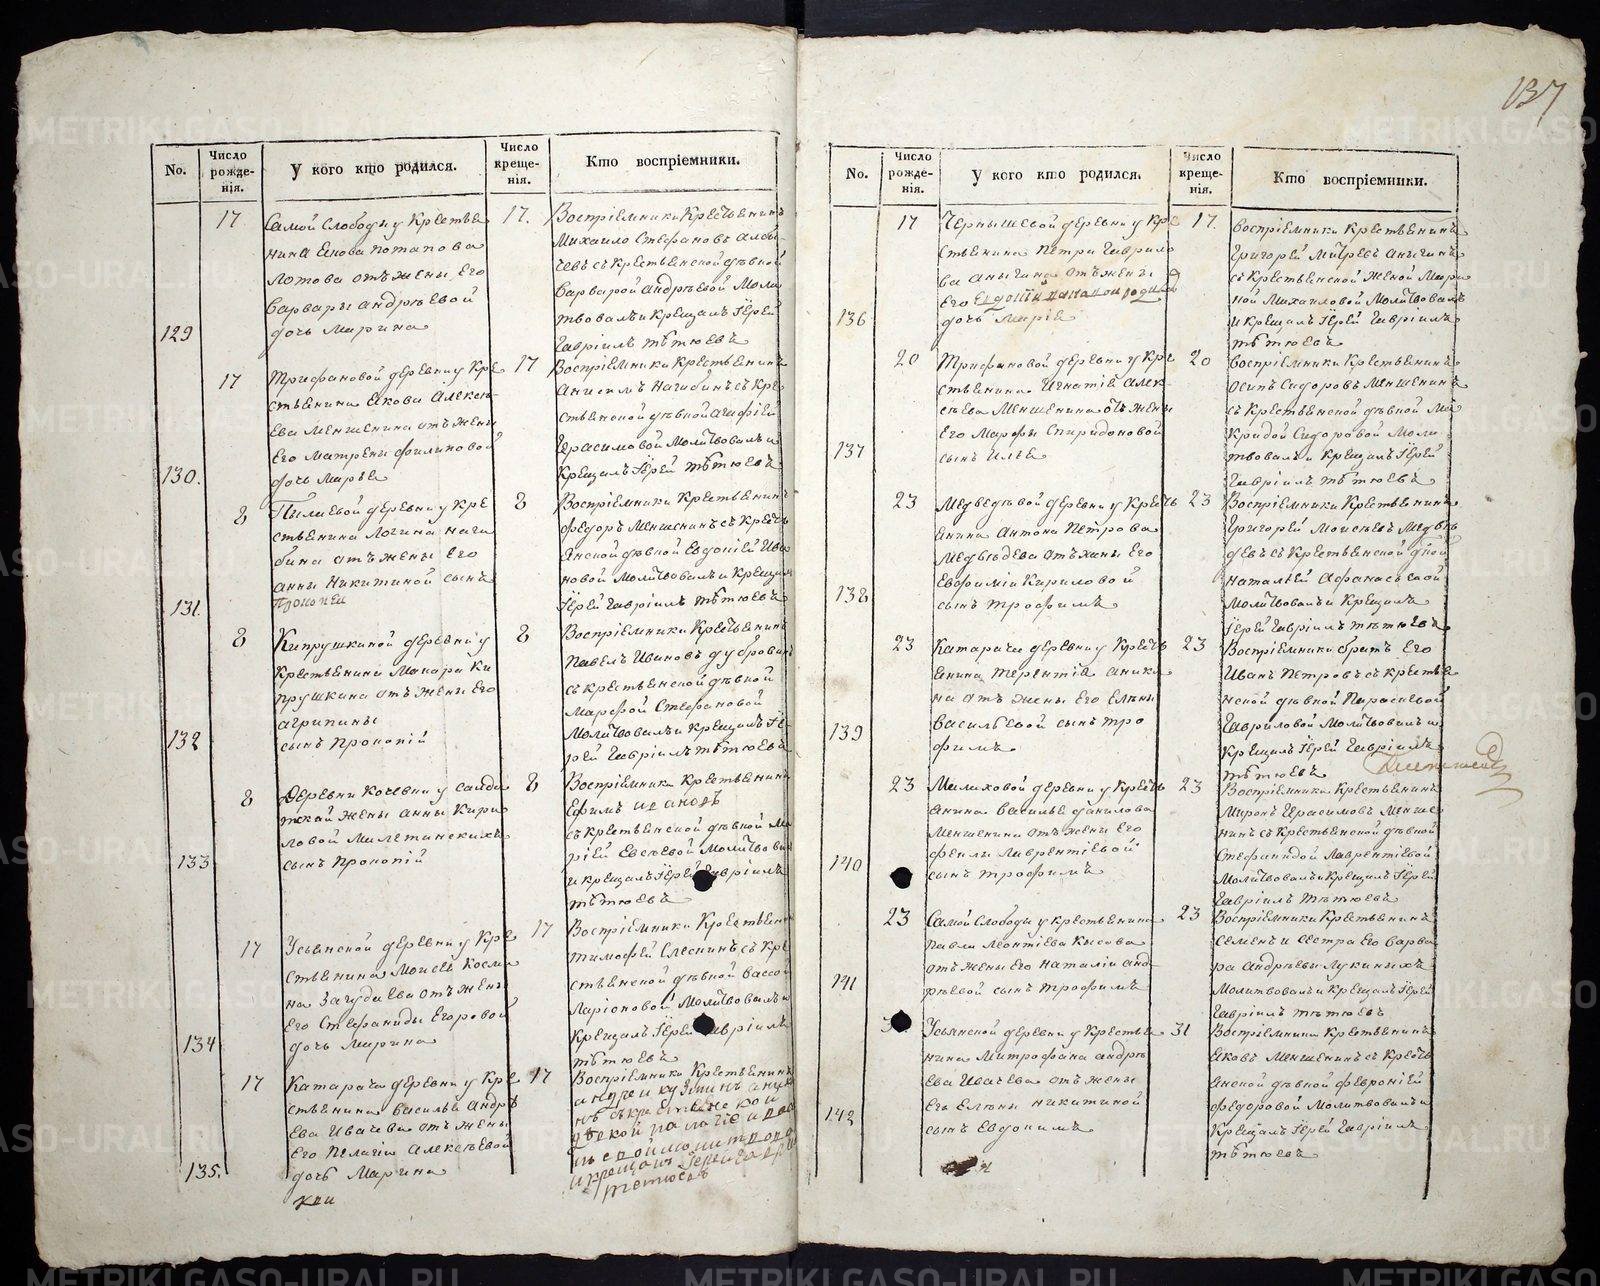 137
No.
Число рожде-нія.
У кого кто родился.
Число креще-нія.
Кто воспріемники.
17
Самой Слободы у Крестья
нина Якова Потапова
Лотова отъ жены Его
Варвары Андрѣевой
129
дочь Марина
17.
Воспріемники Крестьянинъ
Михайло Стефановъ
съ Крестьянской дѣвкой
Варварой Андрѣевой Моли
твовалъ и Крещалъ Іерей
Гавріилъ Тѣтюевъ
17
Трифановой деревни у Кре
стьянина Якова Алексѣ
ева Меншенина отъ жены
Его Матрены Филиповой
130.
дочь Марья
17
Воспріемники Крестьянинъ
Нагибинъ съ Кре
стьянской дѣвкой Агафіей
Герасимовой Молитвовалъ и
Крещалъ Іерей Тѣтюевъ
8
деревни у Кре
стьянина Логина Наги
бина отъ жены Его
Анны Никитиной сынъ
131.
Прокопей
8
Воспріемники Крестьянинъ
Федоръ Меншенинъ съ Кресть
янской дѣвкой Евдокіей Ива
новой Молитвовалъ и Крещалъ
Іерей Гавріилъ Тѣтюевъ
8
Кипрушкиной деревни у
Крестьянина Макара Ки
прушкина отъ жены Его
Агрипины
132
сынъ Прокопій
8
Воспріемники Крестьянинъ
Павелъ Ивановъ Дубровинъ
съ Крестьянской дѣвкой
Марфой Стефановой
Молитвовалъ и Крещалъ Іе
рей Гавріилъ Тѣтюевъ
8
Деревни Кочевки у солда
тской жены Анны Кири
ловой Милетинскихъ
133
сынъ Прокопій
8
Воспріемники Крестьянинъ
Ефимъ Ивановъ
съ Крестьянской дѣвкой Ма
ріей Евсѣевой Молитвовалъ
и крещалъ Іерей Гавріилъ
Тѣтюевъ
17
Усьянской деревни у Кре
стьянина Моисея Косми
на Загудаева отъ жены
Его Стефаниды Егоровой
134
дочь Марина
17
Воспріемники Крестьянинъ
Тимофей Слеснинъ съ Кре
стьянской дѣвкой Вассой
Ларіоновой Молитвовалъ и
Крещалъ Іерей Гавріилъ
Тѣтюевъ
17
Катарача деревни у Кре
стьянина Василья Андрѣ
ева Ивачева отъ жены
Его Пелагіи Алексѣевой
135.
дочь Марина
17
Воспріемники Крестьянинъ
Андрей Кузминъ
съ крестьянской
дѣвкой
и крещалъ Іерей
Тетюевъ
No.
Число рожде-нія.
У кого кто родился.
Число креще-нія.
Кто воспріемники.
17
Чернышевой деревни у Кре
стьянина Петра Гаврило
ва Аньгина отъ жены
Его
136
дочь Марія
17.
воспріемники Крестьянинъ
Григорей Аньгинъ
съ Крестьянской Женой Мари
ной Михаиловой Молитвовалъ
и Крещалъ Іерей Гавріилъ
Тѣтюевъ
20
Трифановой деревни у Кре
стьянина Игнатія Алек
сѣева Меншенина отъ жены
Его Марфы Спиридоновой
137
сынъ Илья
20
воспріемники Крестьянинъ
Осипъ Сидоровъ Меншенинъ
съ Крестьянской дѣвкой Ма
кридой Сидоровой Моли
твовалъ и Крещалъ Іерей
Гавріилъ Тѣтюевъ
23
Медведевой деревни у Кресть
янина Антона Петрова
Медвѣдева отъ жены Его
Евфиміи Кириловой
138
сынъ Трофимъ
23
Воспріемники Крестьянинъ
Григорей Моисѣевъ Медвѣ
девъ съ Крестьянской дѣвкой
Натальей Афанасьевой
Молитвовалъ и Крещалъ
Іерей Гавріилъ Тѣтюевъ
23
Катарачи деревни у Кресть
янина Терентія Аники
на отъ жены Его Елены
Васильевой сынъ Тро
139
фимъ
23
Воспріемники братъ Его
Иванъ Петровъ съ Крестья
нской дѣвкой Параскевой
Гавриловой Молитвовалъ и
Крещалъ Іерей Гавріилъ
Тѣтюевъ
23
Малиховой деревни у Кресть
янина Василья Данилова
Меншенина отъ жены Его
Феклы Лаврентіевой
140
сынъ Трофимъ
23
Воспріемники Крестьянинъ
Миронъ Герасимовъ Менше
нинъ съ Крестьянской дѣвкой
Стефанидой Лаврентіевой
Молитвовалъ и Крещалъ Іерей
Гавріилъ Тѣтюевъ
23
Самой Слободы у Крестьянина
Павла Леонтіева Кысова
отъ жены Его Наталіи Анд
141
рѣевой сынъ Трофимъ
23
Воспріемники Крестьянинъ
Семенъ и Сестра Его Варва
ра Андрѣевы Лукиныхъ
Молитвовалъ и Крещалъ Іерей
Гавріилъ Тѣтюевъ
Усьянской деревни у Крестья
нина Митрофана Андрѣ
ева Ивачева отъ жены
142
Его Елены Никитиной
сынъ Евдокимъ
31
Воспріемники Крестьянинъ
Яковъ Меншенинъ съ Кресть
янской дѣвкой Февроніей
Федоровой Молитвовалъ и
Крещалъ Іерей Гавріилъ
Тѣтюевъ
METRIKI.GASO-URAL.RU